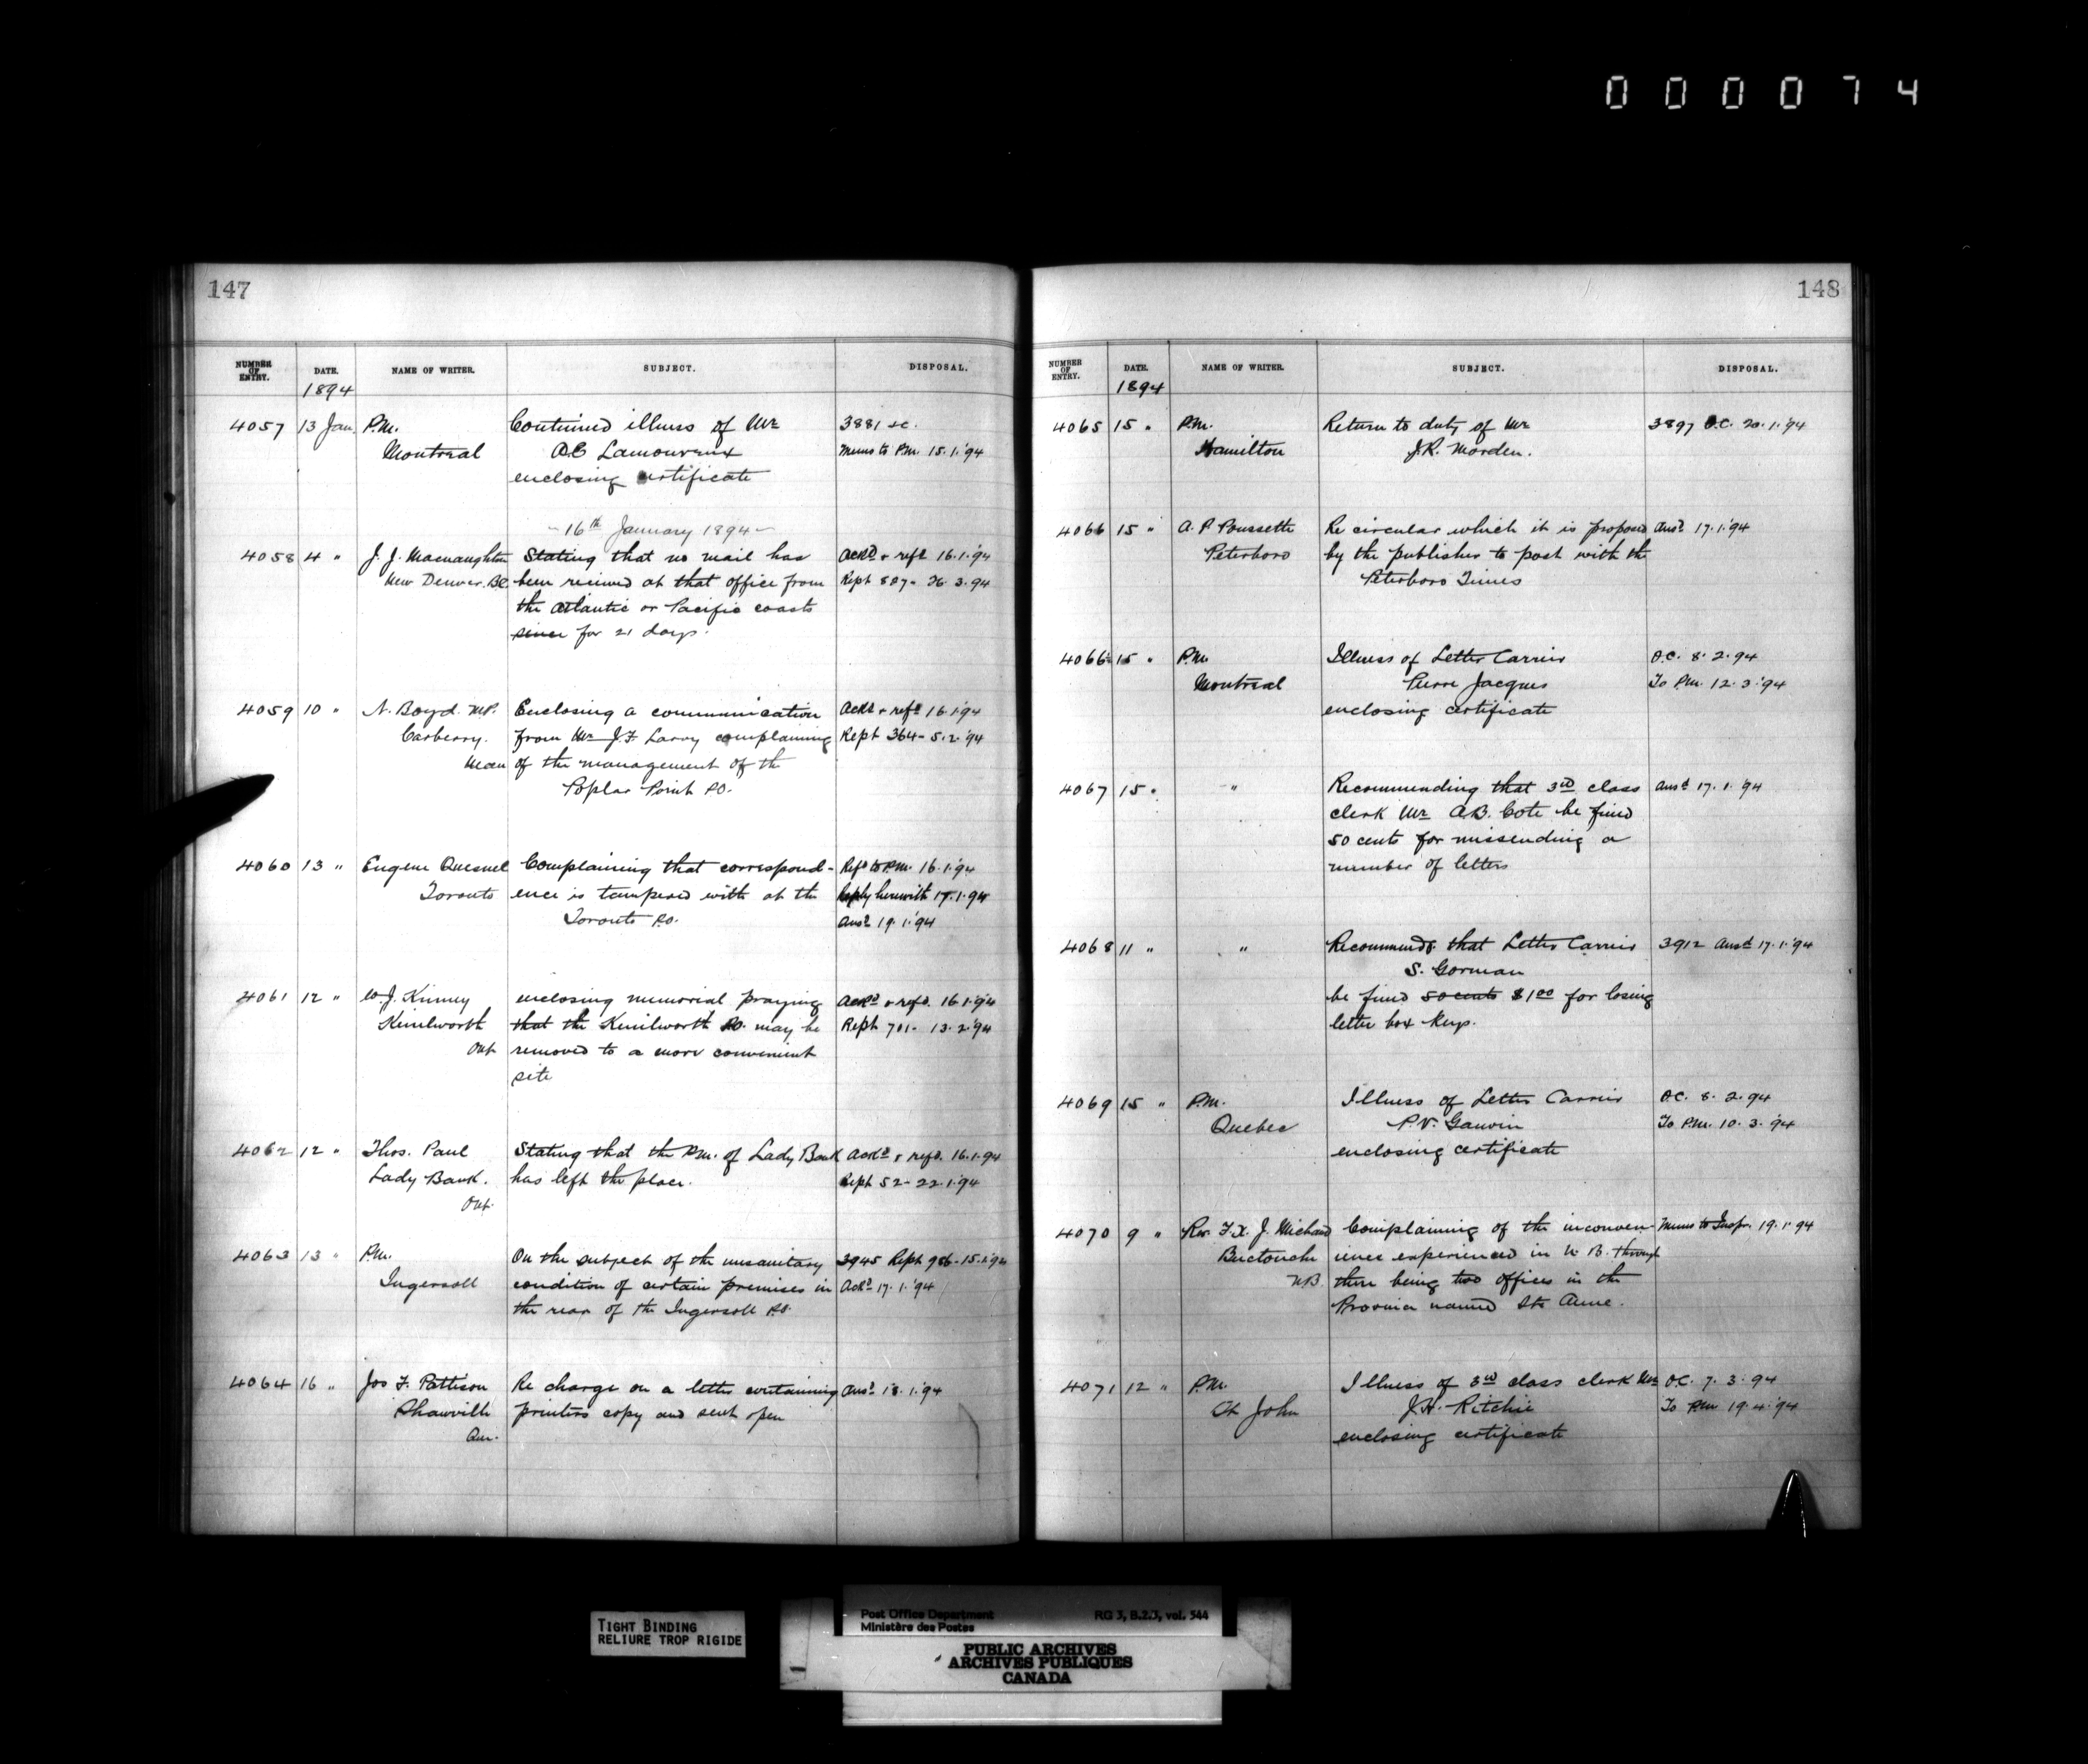 0 0 0 0 7 4
147
NUMBER OF ENTRY. DATE. NAME OF WRITER. SUBJECT. DISPOSAL.
1894
4057 13 Jan. P.M. Continued illness of Mr 3881 S.C.
Montreal A.E. Lamoureux Memo to P.M. 15.1.'94
enclosing certificate
- 16th January 1894 -
4058 4 " J. J. Macnaughton Stating that no mail has Ackd & refd 16.1.'94
New Denver. BC been received at that office from Rept 887 - 26.3.94
the Atlantic or Pacific coasts
since for 21 days.
4059 10 " N. Boyd. M.P. Enclosing a communication Ackd & refd 16.1.'94
Carberry. from Mr J.F. Larry complaining Rept 364 - 5.2.'94
Man of the management of the
Poplar Point P.O.
4060 13 " Eugene Quesnel Complaining that correspond- Refd to P.M. 16.1.'94
Toronto ence is tampered with at the Reply herewith 17.1.94
Toronto P.O. Ansd 19.1.'94
4061 12 " W.J. Kinney enclosing memorial praying Ackd & refd. 16.1.'94
Kenilworth that the Kenilworth P.O. may be Rept 701 - 13.2.'94
Ont removed to a more convenient
site
4062 12 " Thos. Paul Stating that the P.M. of Lady Bank Ackd & refd. 16.1.94
Lady Bank. has left the place. Rept 52 - 22.1.'94
Ont.
4063 13 " P.M. On the subject of the unsanitary 3945 Rept 986 - 15.1.'94
Ingersoll condition of certain premises in Ackd 17.1.'94
the rear of the Ingersoll P.O.
4064 16 " Jos F. Pattison Re charge on a letter containing Ansd 18.1.'94
Shawville printers copy and sent open
Que.
148
NUMBER OF ENTRY. DATE. NAME OF WRITER. SUBJECT. DISPOSAL.
1894
4065 15 " P.M. Return to duty of Mr 3897 O.C. 20.1.'94
Hamilton J.R. Morden.
4066 15 " A. P. Poussette Re circular which it is proposed Ansd 17.1.'94
Peterboro by the publisher to post with the
Peterboro Times
4066½ 15 " P.M. Illness of Letter Carrier O.C. 8.2.94
Montreal Pierre Jacques To P.M. 12.3.'94
enclosing certificate
4067 15 " " Recommending that 3rd class Ansd 17.1.'94
clerk Mr A.B. Cote be fined
50 cents for missending a
number of letters
4068 11 " " Recommends that Letter Carrier 3912 Ansd 17.1.'94
S. Gorman
be fined 50 cents $1.00 for losing
letter box keys.
4069 15 " P.M. Illness of Letter Carrier O.C. 8.2.94
Quebec P.V. Gauvin To P.M. 10.3.'94
enclosing certificate
4070 9 " Rev. F.X. J. Michaud Complaining of the inconven- Memo to Inspr. 19.1.'94
Buctouche ience experienced in N.B. through
N.B. there being two offices in the
Province named Ste Anne.
4071 12 " P.M. Illness of 3rd class clerk Mr O.C. 7.3.94
St John J.H. Ritchie To P.M. 19.4.'94
enclosing certificate
TIGHT BINDING
RELIURE TROP RIGIDE
Post Office Department RG 3, B.2.3, vol. 544
Ministère des Postes
PUBLIC ARCHIVES
ARCHIVES PUBLIQUES
CANADA